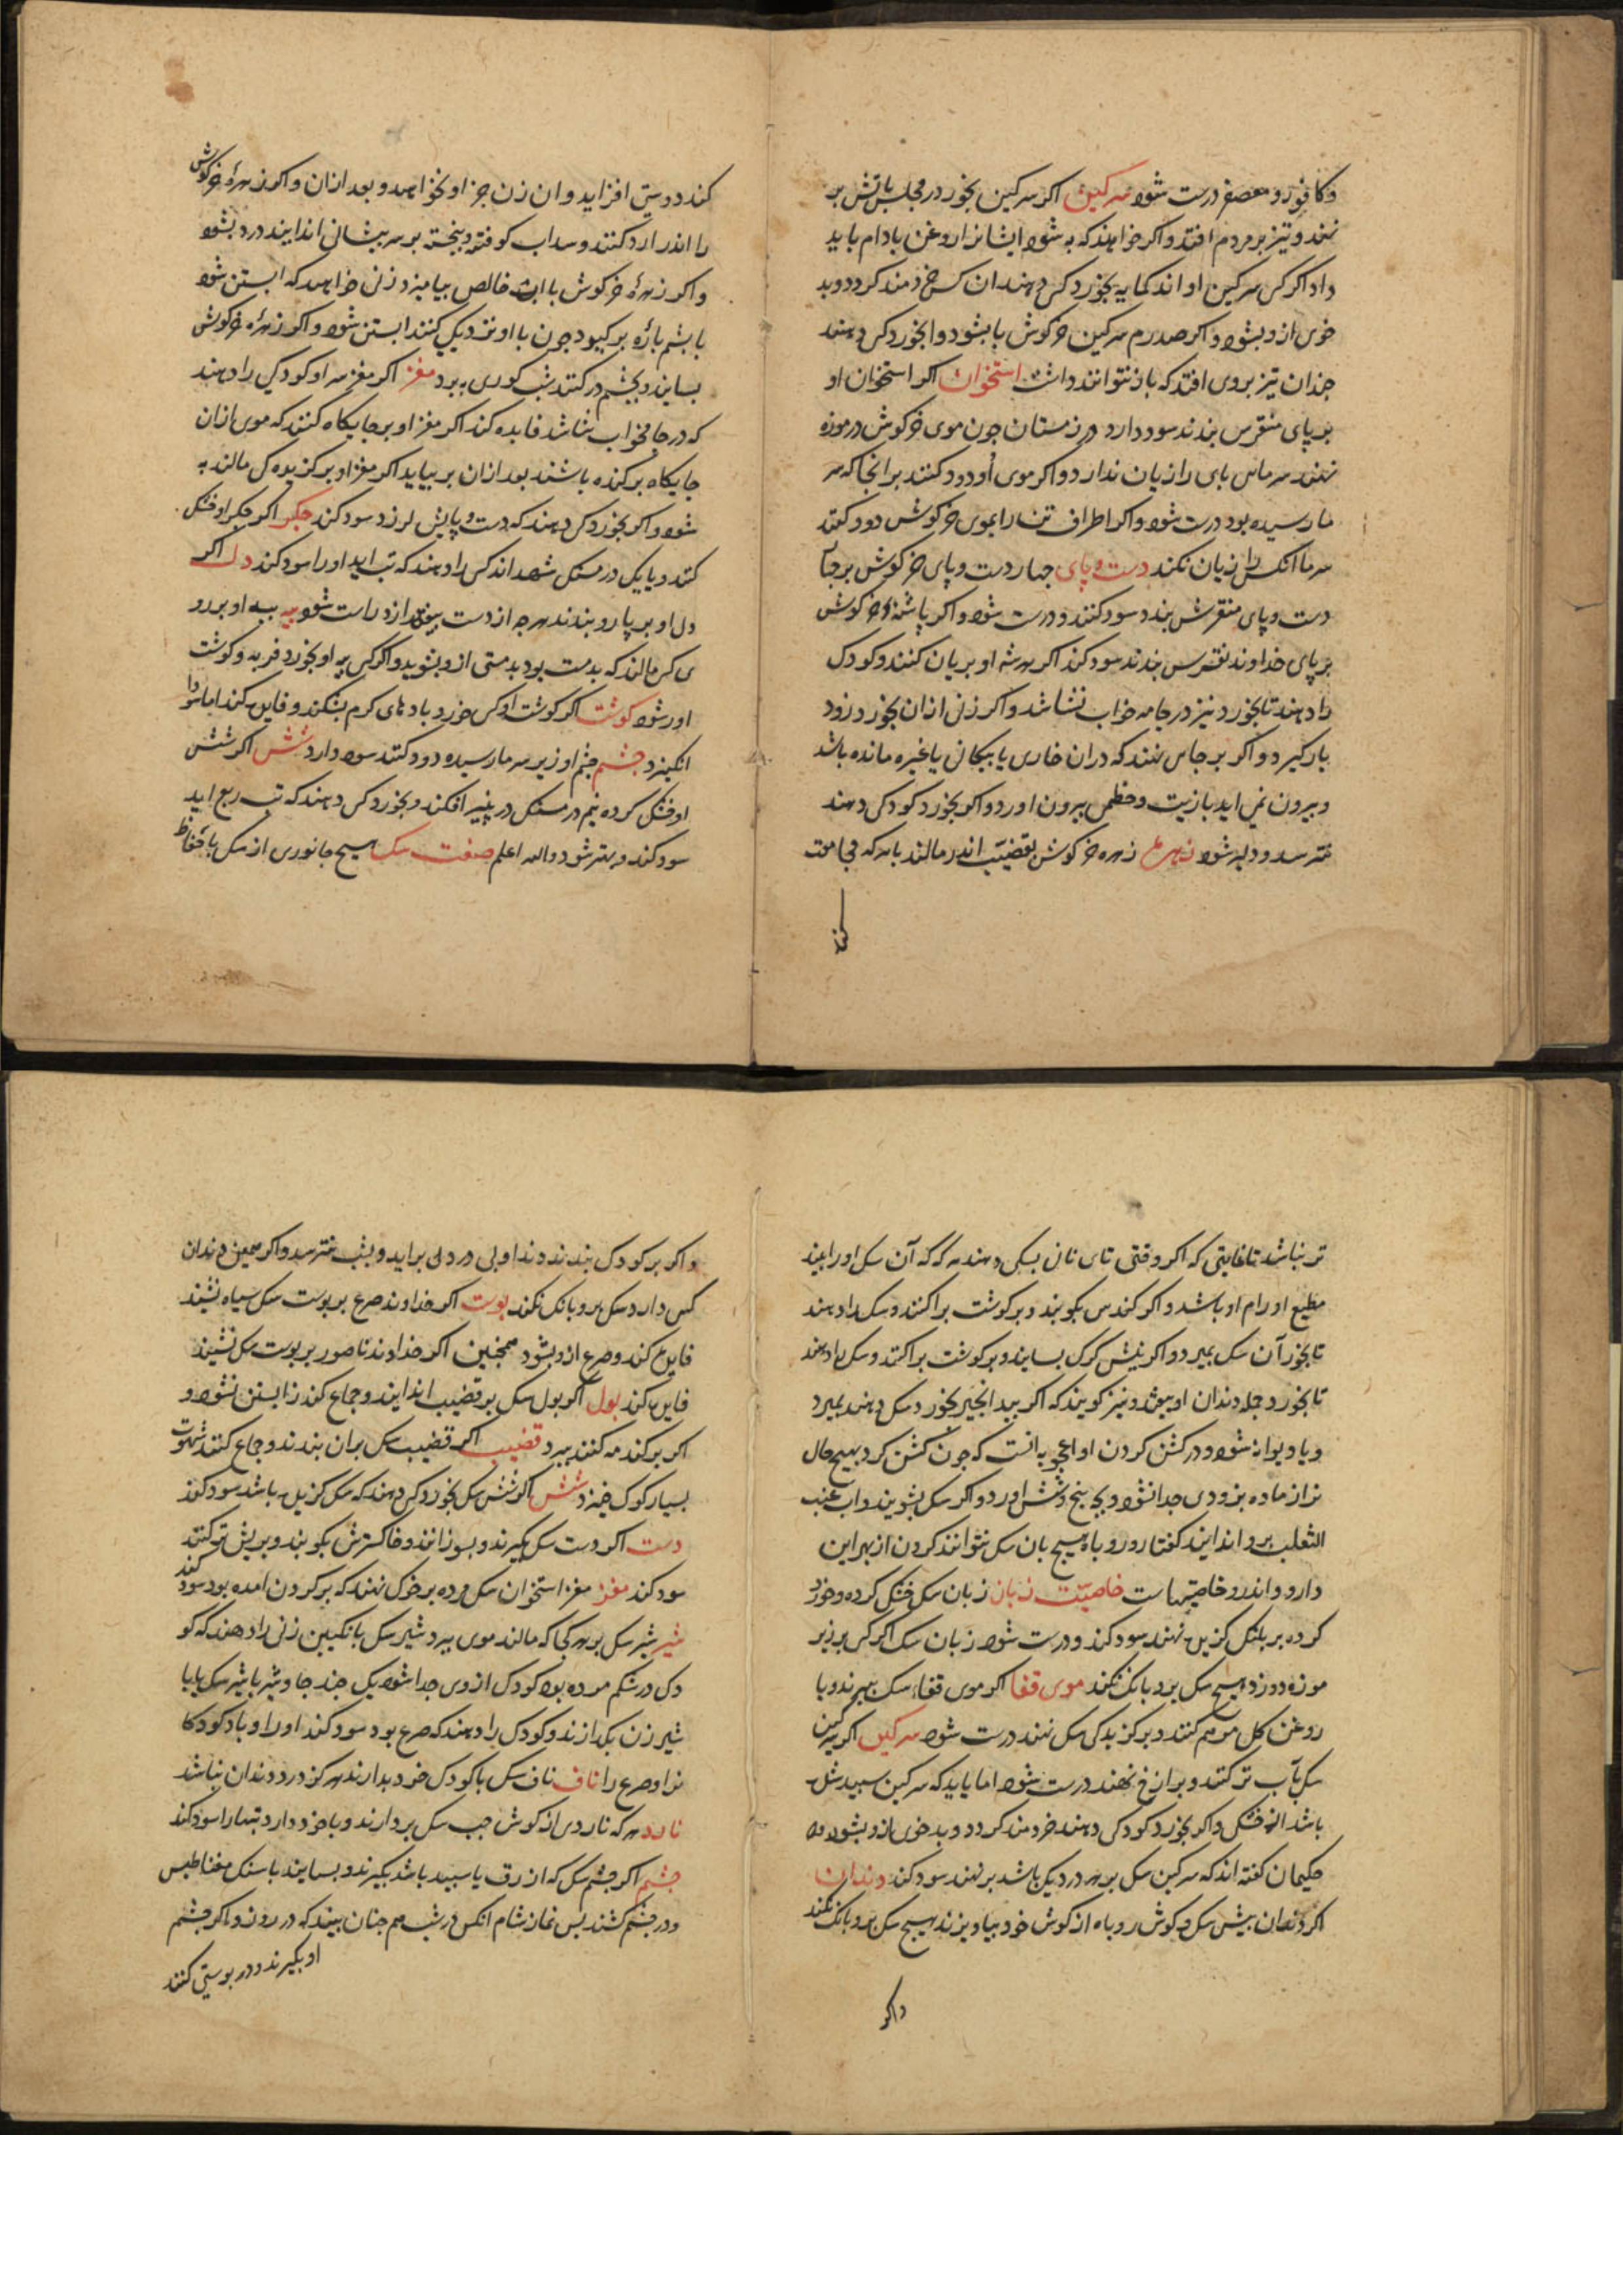 وکافور و معصفر درست شود سرکین اکر سرکین بخور در مجلس باتش بر
نهند و تیز بر مردم افتد و اکر خواهند که به شود ایشانرا روغن بادام باید
داد اکر کس سرکین او اندکمایه بخورد کس دهند ان کس خردمند کردد و بد
خوی ازو بشود و اکر صدرم سرکین خرکوش با بخورد کس دهند
جندان تیز بروی افتد که باز نتوانند داشت استخوان اکر استخوان او
بر پای منقرس بندند سود دارد در زمستان جون موی خرکوش در موزه
نهند سرمای بای را زیان ندارد و اکر موی او دود کنند بر انجا که سر
ما رسیده بود درست شود و اکر اطراف تن را بموی خرکوش دود کنند
سرما انکس را زیان نکند دست و پای جهار دست و پای خرکوش بر جا
دست و پای منقرس بندد سود کنند و درست شود و اکر پاشنهٔ خرکوش
بر پای خداوند نقرس بندند سود کند اکر بریان کنند و کودک
را دهند تا بخورد نیز در جامه خواب نشاشد و اکر زنی ازان بخورد زود
بار کیرد و اکر بر جای نهند که دران خاری یا بیکانی یا غیره مانده باشد
و بیرون نمی اید بازیت و خطمی بیرون اورد و اکر بخورد کودکی دهند
نترسد و دلیر شود زهره زهره خرکوش بقضیب اندر مالند باهر که مجامعت
کند
کند دوستی افزاید و ان زن جز او نخواهد و بعد ازان و اکر زهرهٔ خرکوش
را اندر ارد کنند و سداب کوفته و بیخته بر سر بیشانی اندایند درد بشود
و اکر زهرهٔ خرکوش با خالص بیامیزد زنی خواهد که ابستن شود
با بشم بارهٔ برکیرد جون با او نزدیکی کنند ابستن شود و اکر زهرهٔ خرکوش
بسایند و بچشم در کنند شب کوری ببرد مغز اکر مغز سر او کودکی را دهند
که در جامه خواب شاشد فایده کند اکر مغز او بر جایکاه کنند که موی ازان
جایکاه برکنده باشند بعد ازان بر نیاید اکر مغز او بر کزیده کی مالند به
شود و اکر بخورد کس دهند که دست و پایش لرزد سود کند جکر اکر جکر او خشک
کنند و با یک درمسنک شهد اند کس را دهند که تب اید او را سود کند دل اکر
دل او بر پا رو بندند هرجه از دست بیفتد ازو راست شود پیه پیه او بر رو
ی کس مالند که بدمست بود بدمستی ازو بشوید و اکر کس پیه او بخورد فربه و کوشت
اور شود کوشت اکر کوشت او کس خورد بادهای کرم بشکند و فایده کند اما سودا
انکیزد جشم جشم او زیر سرما رسیده دود کنند سود دارد شش اکر شش
او خشک کرده نیم درمسنک در پنیر افکند و بخورد کس دهند که تب ربع اید
سود کند و بهتر شود والله اعلم صفت سک هیچ جانوری از سک باحفاظ
تر نباشد تا غایتی که اکر وقتی تای نان بسکی دهند هرکه آن سک او را بیند
مطیع او رام او باشد و اکر کندس بکوبند و بر کوشت براکنند و سک را دهند
تا بخورد آن سک بمیرد و اکر نیش کرک بسایند و بر کوشت براکنند و سک را دهند
تا بخورد جمله دندان او بیفتد و نیز کویند که اکر بیدانجیر بخورد سک دهند بمیرد
و یا دیوانه شود و در کشن کردن او اعجوبه انست که جون کشن کرد بهیچ حال
نر از ماده بزودی جدا نشود و بجه بنج و شش اورد و اکر سک بشویند و اب عنب
الثعلب برو اندایند کفتار و روباه هیچ بان سک نتوانند کردن از بهر این
دارو و اندرو خاصیتهاست خاصیّت زبان زبان سک خشک کرده و خورد
کرده بر بلنک کزیده نهند سود کند و درست شود زبان سک اکر کس بر زیر
موزه دوزد هیچ سک برو بانک نکند موی قفا اکر موی قفاء سک ببرند و با
روغن کل مرهم کنند و بر کزیدکی سک نهند درست شود سرکین اکر سرکین
سک بآب تر کنند و بران زخ نهند درست شود اما باید که سرکین سبید شده
باشد از خشکی و اکر بخورد کودکی دهند خردمند کردد و بد خوی ازو بشود و
حکیمان کفته اند که سرکین سک بر هر دردیکی باشد بر نهند سود کند دندان
اکر دندان بیش سک و کوش روباه از کوش خود بیاویزند هیچ سک برو بانک نکند
واکر
و اکر بر کودک بندند دندان او بی درد دلی براید و بشب نترسد و اکر همین دندان
کس دارد سک برو بانک نکند پوست اکر خداوند صرع بر پوست سک سیاه نشیند
فایده کند و صرع ازو بشود همجنین اکر خداوند ناصور بر پوست سک نشیند
فایده کند بول اکر بول سک بر قضیب اندایند و جماع کند زن ابستن نشود و
اکر بر کنده کنند ببرد قضیب اکر قضیب سک بران بندند و جماع کنند شهوت
بسیار کوک خیزد شش اکر شش سک بخورد کس دهند که سک کزیده باشد سود کند
دست اکر دست سک بکیرند و بسوزانند و خاکسترش بکوبند و بریش تر کنند
سود کند مغز مغز استخوان سک مرده بر خوک نهند که بر کردن امده بود سود کند
شیر شیر سک بر هر کجا که مالند موی ببرد شیر سک با نکبین زنی را دهند که کو
دک در شکم مرده بود کودک از وی جدا شود یک جند جاو شیر با شیر سک یا با
شیر زن بکدازند و کودک را دهند که صرع بود سود کند او را و باد کودکا
نرا و صرع را ناف ناف سک با کودک خرد بدارند هرکز درد دندان نباشد
نارد هرکه ناردی از کوش جب سک بردارند و با خود دارد تبها را سود کند
جشم اکر جشم سک که ازرق یا سبید باشد بکیرند و بسایند با سنک مغناطیس
و در جشم کشند بس نماز شام انکس در شب هم جنان بیند که در روز و اکر جشم
او بکیرند و در پوستی کنند